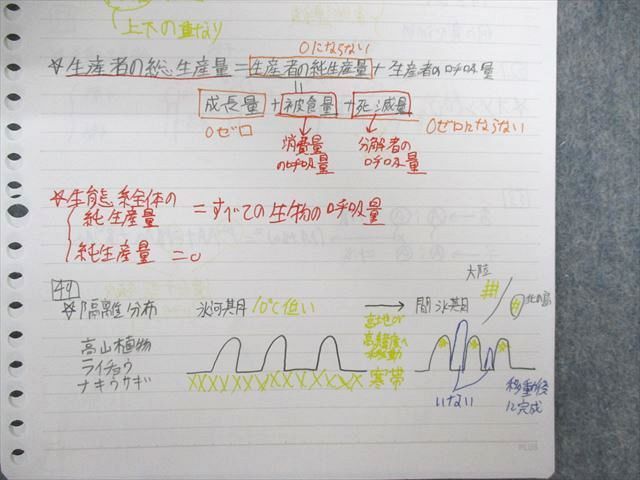 上下の重なり
0にならない
☆生産者の総生産量=生産者の純生産量+生産者の呼吸量
成長量+被食量+死滅量
0ゼロ
0ゼロにならない
消費量の呼吸量
分解者の呼吸量
☆生態系全体の
純生産量=すべての生物の呼吸量
純生産量=0
49
☆隔離分布
氷河期 10℃低い
間氷期
大陸
北の島
高地or
高緯度へ
移動
高山植物
ライチョウ
ナキウサギ
寒帯
いない
移動後
に完成
PLUS